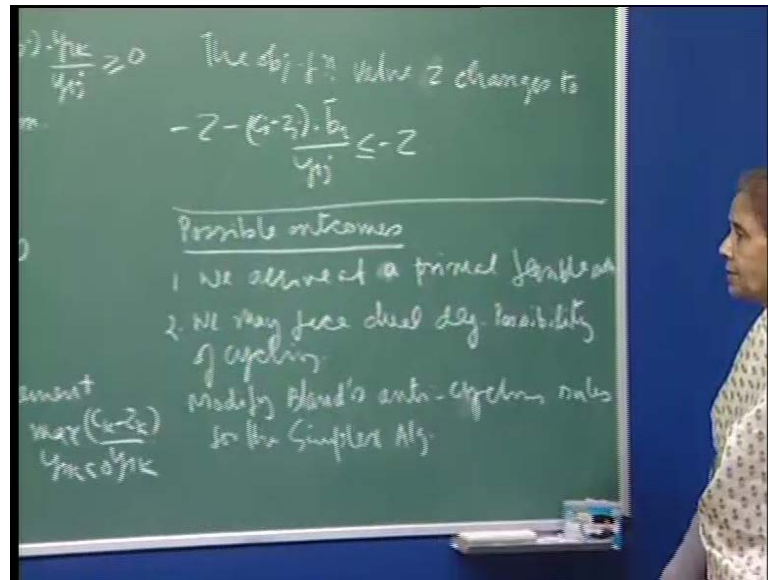 ). y_rk / y_rj ≥ 0
The obj. fn value z changes to
m.
-z - (cj-zj). b̄r / y_rj ≤ -z
Possible outcomes
1. We arrive at a primal feasible
2. We may face dual deg. Possibility
of cycling.
Modify Bland's anti-cycling rules
for the Simplex Alg.
ement
max (ck-zk)
y_rk<0 y_rk